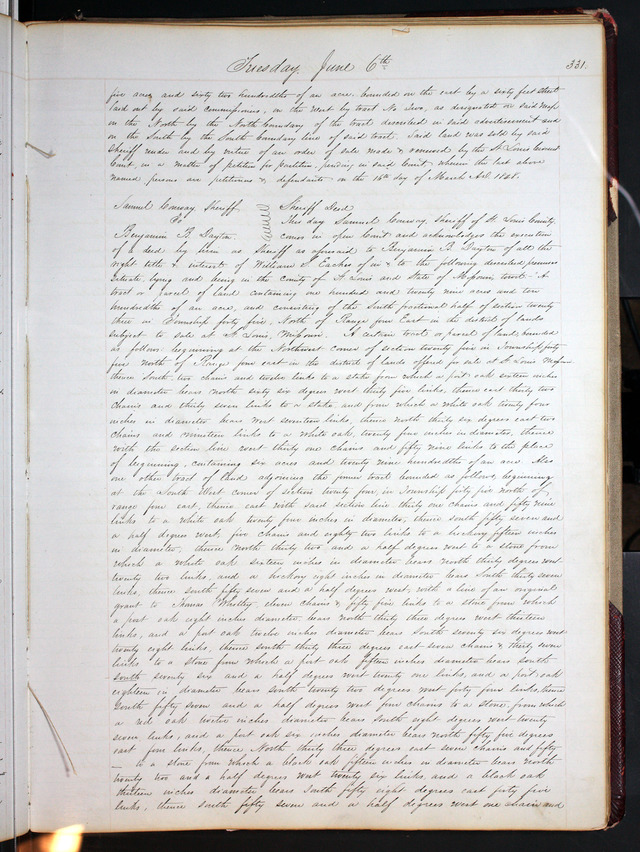 Tuesday, June 6th 331.
five acres and sixty two hundredths of an acre bounded on the east by a sixty feet street
laid out by said commissioners, on the West by tract No Two, as designated on said map
on the North by the North boundary of the tract described in said advertisement and
on the South by the South boundary line of said tract. Said land was sold by said
Sheriff under and by virtue of an order of sale made & renewed by the St Louis Circuit
Court, in a matter of petition for partition, pending in said Court wherein the last above
named persons are petitioners & defendants on the 16th day of March A.D. 1848.
Samuel Conway Sheriff Sheriff Deed
To This day Samuel Conway, Sheriff of St Louis County,
Benjamin B. Dayton comes in open Court and acknowledges the execution
of a deed by him as Sheriff as aforesaid to Benjamin B. Dayton of all the
right title & interest of William S. Eaches of in & to the following described premises
situate, lying and being in the County of St Louis and State of Missouri, towit: A
tract or parcel of land containing one hundred and twenty nine acres and ten
hundredths of an acre, and consisting of the South fractional half of section twenty
three in Township forty five, North of Range four East in the district of lands
subject to sale at St Louis, Missouri. A certain tract or parcel of land, bounded
as follows beginning at the Northwest corner of section twenty five in Township forty
five North of Range four east in the district of lands offered for sale at St Louis Missouri
thence South two chains and twelve links to a stake from which a post oak sixteen inches
in diameter bears North sixty six degrees west thirty five links, thence east thirty two
chains and thirty seven links to a stake, and from which a white oak twenty four
inches in diameter bears West seventeen links, thence north thirty six degrees east two
chains and nineteen links to a white oak, twenty five inches in diameter, thence
with the section line west thirty one chains and fifty nine links to the place
of beginning, containing six acres and twenty nine hundredths of an acre. Also
one other tract of land adjoining the former tract bounded as follows, beginning
at the South West corner of section twenty four, in Township forty five north of
range four east, thence east with said section line thirty one chains and fifty nine
links to a white oak twenty four inches in diameter, thence south fifty seven and
a half degrees west, five chains and eighty two links to a hickory fifteen inches
in diameter, thence North thirty two and a half degrees west to a stone from
which a white oak sixteen inches in diameter bears North thirty degrees west
twenty two links, and a hickory eight inches in diameter bears South thirty seven
links, thence south fifty seven and a half degrees west, with a line of an original
grant to Thomas Whitley eleven chains & fifty five links to a stone from which
a post oak eight inches diameter bears north thirty three degrees west thirteen
links, and a post oak twelve inches diameter bears South seventy six degrees west
twenty eight links, thence south thirty three degrees east seven chains & thirty seven
links to a stone from which a post oak fifteen inches diameter bears south
south seventy six and a half degrees west twenty one links, and a post oak
eighteen in diameter bears south twenty two degrees west forty four links, thence
South fifty seven and a half degrees west five chains to a stone, from which
a red oak twelve inches diameter bears South eight degrees west twenty
seven links, and a post oak six inches diameter bears north fifty five degrees
east four links, thence North thirty three degrees east seven chains and fifty
to a stone from which a black oak fifteen inches in diameter bears north
twenty two and a half degrees west twenty six links and a black oak
thirteen inches diameter bears South fifty eight degrees east forty five
links, thence South fifty seven and a half degrees west one chain and